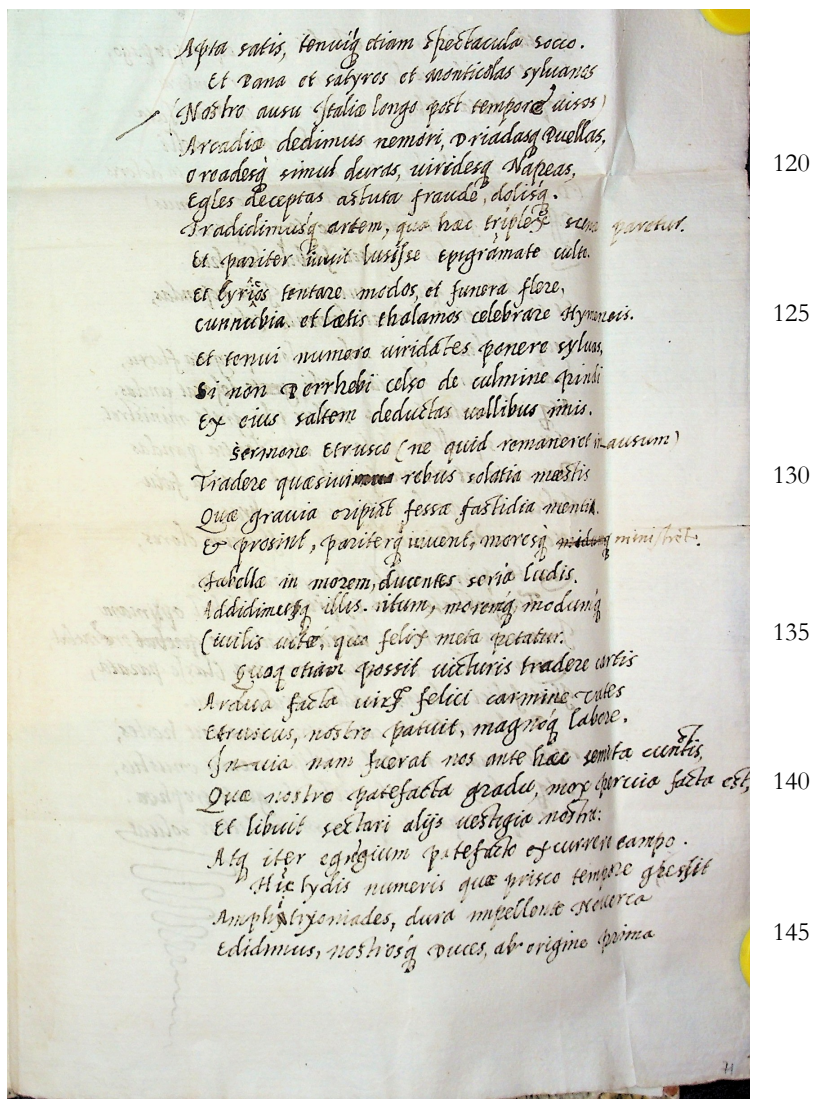 Apta satis, tenuiq́ etiam spectacula socco.
Et Pana et satyros et monticolas sylvanos
(Nostro ausu Italiæ longo post tempore uisos)
Arcadiæ dedimus nemori, Driadasq́ Puellas,
120
Oreadesq́ simul duras, uiridesq́ Napeas,
Egles deceptas astuta fraude, dolisq́.
Tradidimusq́ artem, qua hæc triplex scena paretur.
Et pariter iuuit lusisse epigrámate culto.
Et lyricos tentare modos, et funera flere,
125
Cunnubia et lætis thalamos celebrare Hymeneis.
Et tenui numero uiridātes ponere syluas,
Si non Perrhebi celso de culmine Pindi
Ex eius saltem deductas uallibus imis.
Sermone Etrusco (ne quid remaneret inausum)
130
Tradere quæsiui rebus solatia mæstis
Quæ grauia eripiāt fessæ fastidia mentis.
Et prosint, pariterq́ iuuent, moresq́ ministrēt.
Fabellæ in morem, ducentes seria ludis.
Addidimusq́ illis ritum, moremq́, modumq́
135
Ciuilis uitæ, qua felix meta petatur.
Quoq etiam possit uicturis tradere cartis
Ardua facta uirum felici carmine uates
Etruscus, nostro patuit, magnoq́ labore.
Inuia nam fuerat nos ante hæc semita cunctis,
140
Quæ nostro patefacta gradu, mox peruia facta est,
Et libuit sectari alijs uestigia nostra:
Atq iter egregium patefacto excurrere campo.
Hic lydis numeris quæ prisco tempore gessit
Amphitryoniades, dura impellente Nouerca
145
Edidimus, nostrosq́ Duces, ab origine prima
71